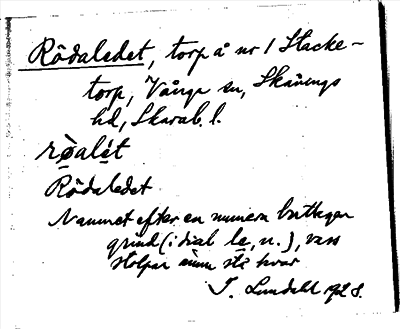 Rödaledet, torp å nr 1 Stacke-
torp, Vånga sn, Skånings
hd, Skarab. l.
ròalét
Rödaledet
Namnet efter en numera borttagen
grind (i dial le, n.), vars
stolpar ännu stå kvar
I. Lundahl 1928.